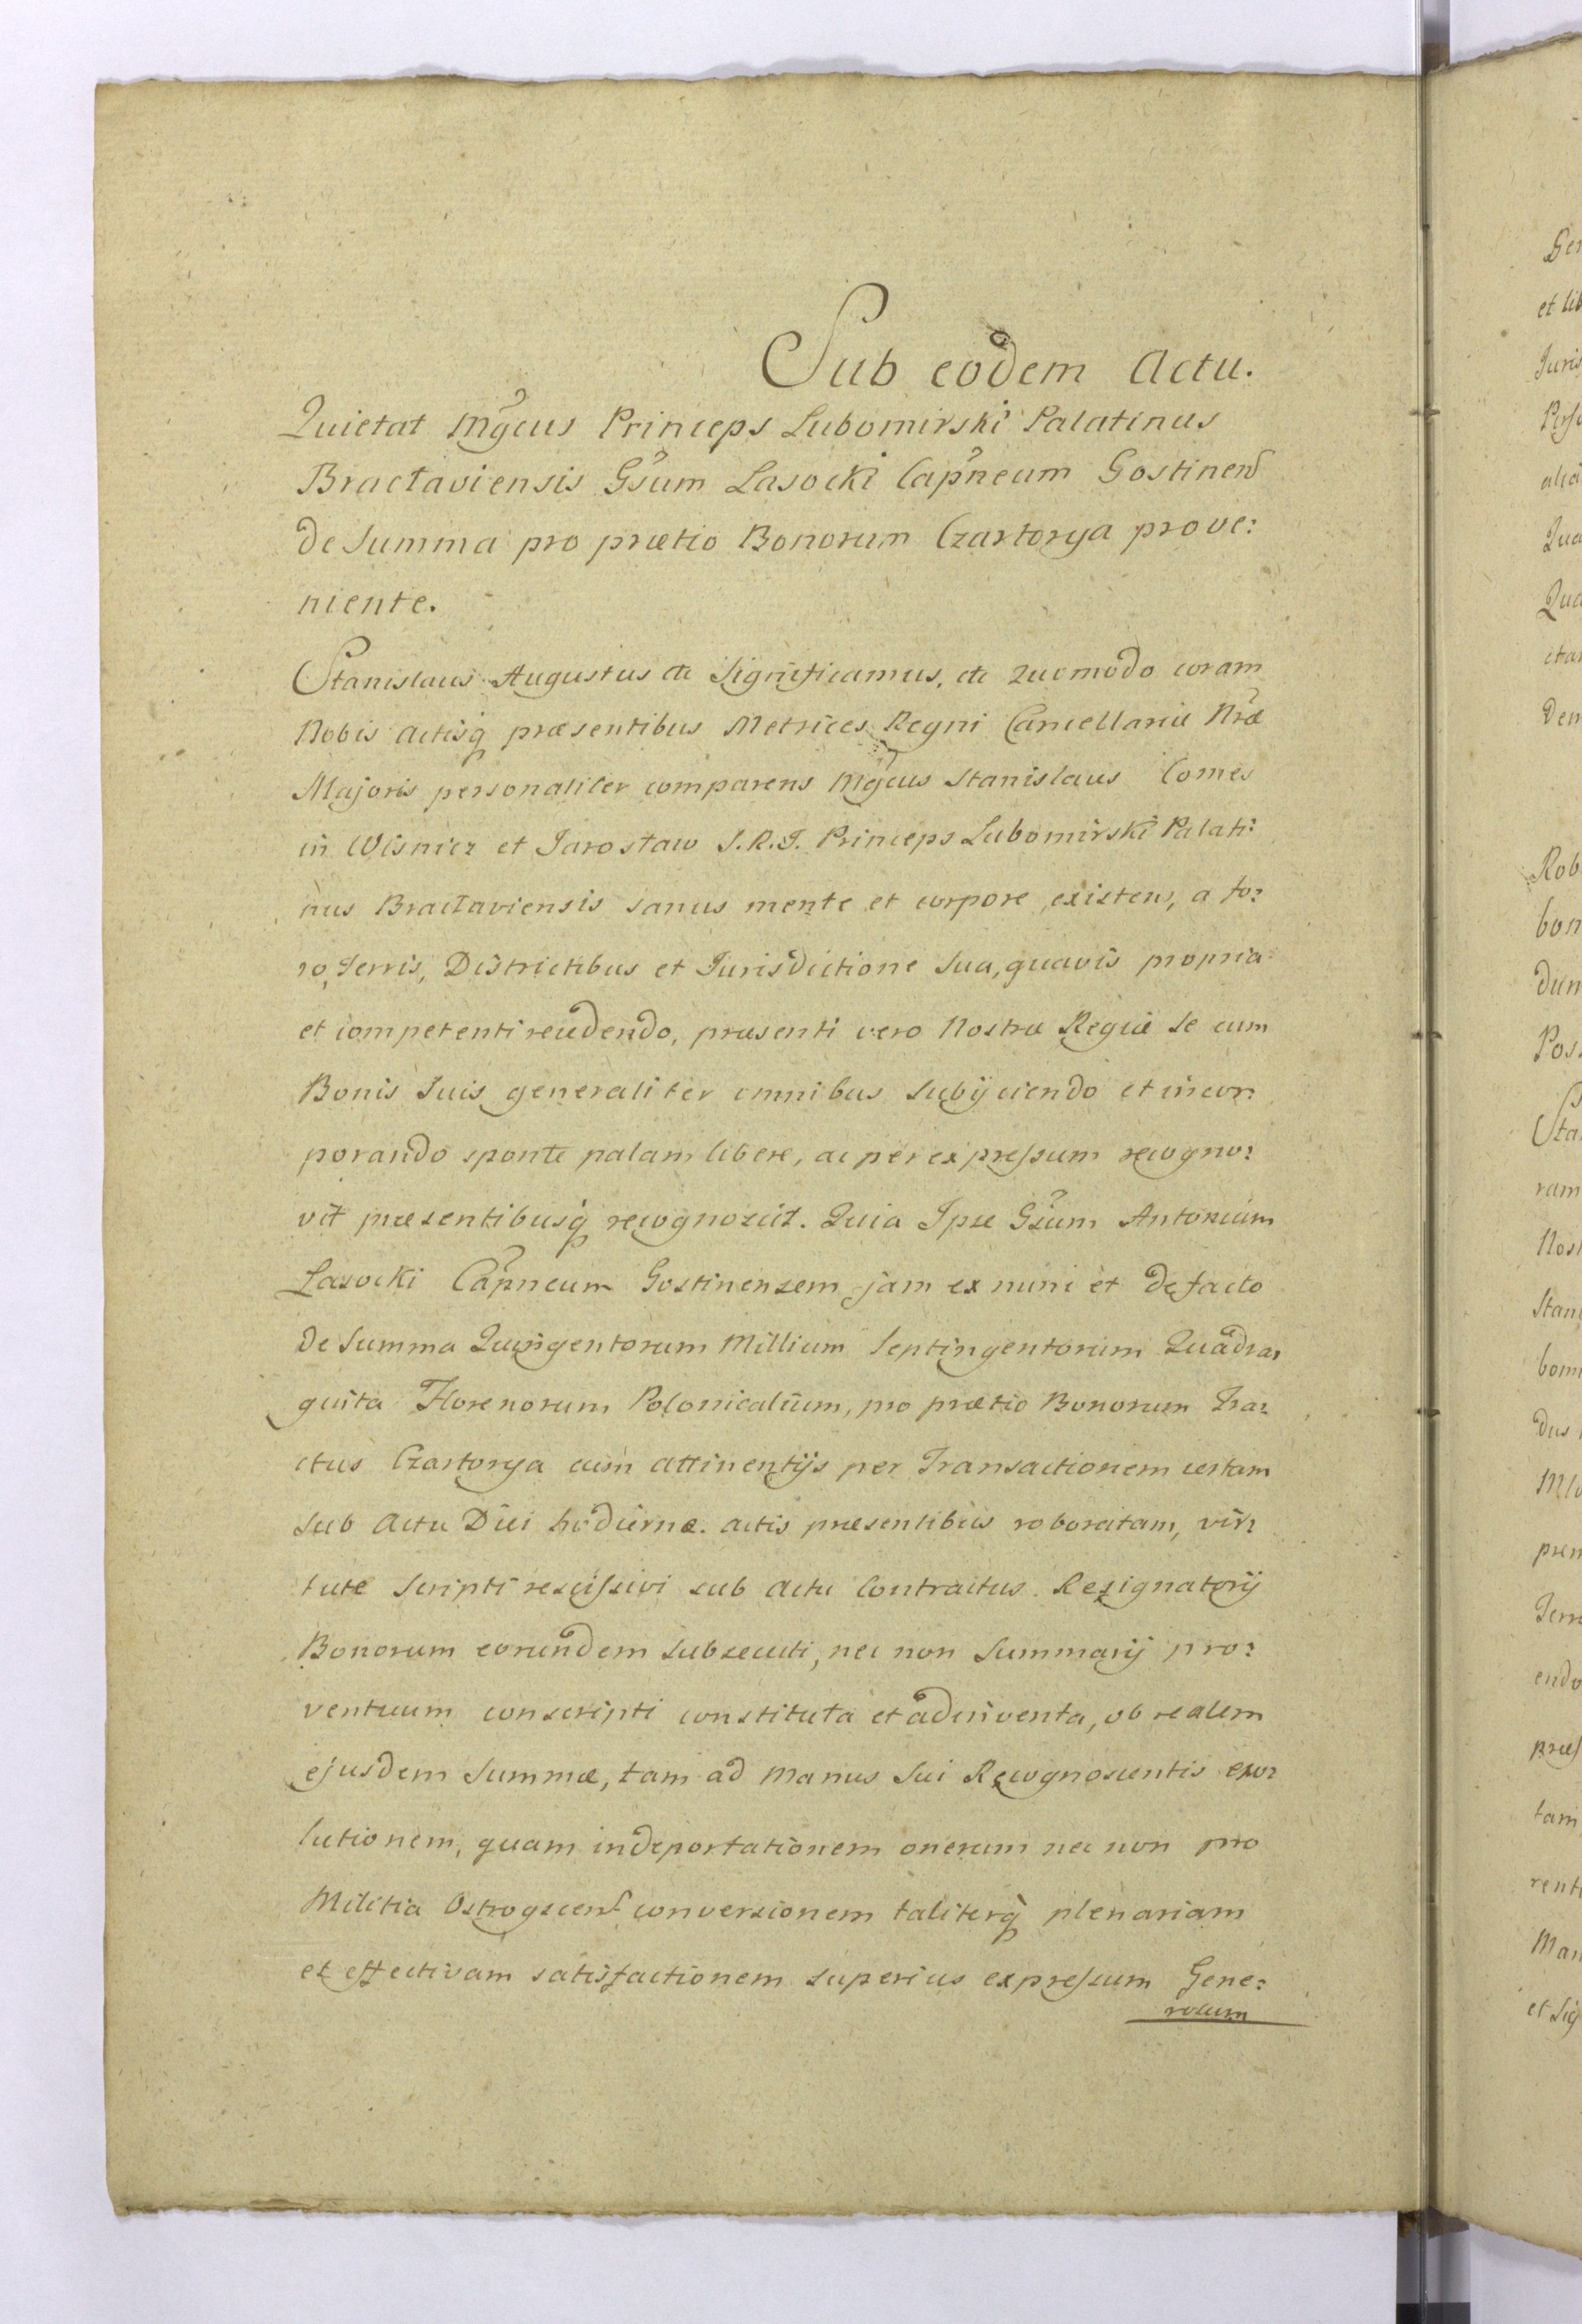 Sub eodem Actu.
Quietat Mgcus Princeps Lubomirski Palatinus
Bractaviensis Gsum Lasocki Capneum Gostinens
de Summa pro prætio Bonorum Czartorya prove:
niente.
Stanislaus Augustus etc Significamus, etc Quomodo coram
Nobis Actisq præsentibus Metrices Regni Cancellariæ Nræ
Majoris personaliter comparens Mgcus Stanislaus Comes
in Wisnicz et Jarosław S.R.I. Princeps Lubomirski Palati:
nus Bractaviensis sanus mente et corpore existens, a fo:
ro, Terris, Districtibus et Jurisdictione Sua, quavis propria
et competenti recedendo, præsenti vero Nostræ Regiæ se cum
Bonis Suis generaliter omnibus Subijciendo et incor:
porando sponte palam libere, ac per expressum recogno:
vit præsentibusq recognoscit. Quia Ipse Gsum Antonium
Lasocki Capneum Gostinensem jam ex nunc et de facto
de Summa Quingentorum Millium Septingentorum Quadra:
guita Florenorum Polonicalium, pro prætio Bonorum Tra:
ctus Czartorya cum attinentijs per Transactionem certam
sub Actu Diei hodiernæ actis præsentibus roboratam, vir:
tute Scripti rescissivi sub Actu Contractus Resignatorij
Bonorum eorundem subsecuti, nec non Summarij pro:
ventuum conscripti constituta et adinventa, ob realem
ejusdem Summæ, tam ad Manus Sui Recognoscentis exo:
lutionem, quam in deportationem onerum nec non pro
Militia Ostrogscens conversionem taliterq plenariam
et effectivam satisfactionem superius expressum Gene:
rosum